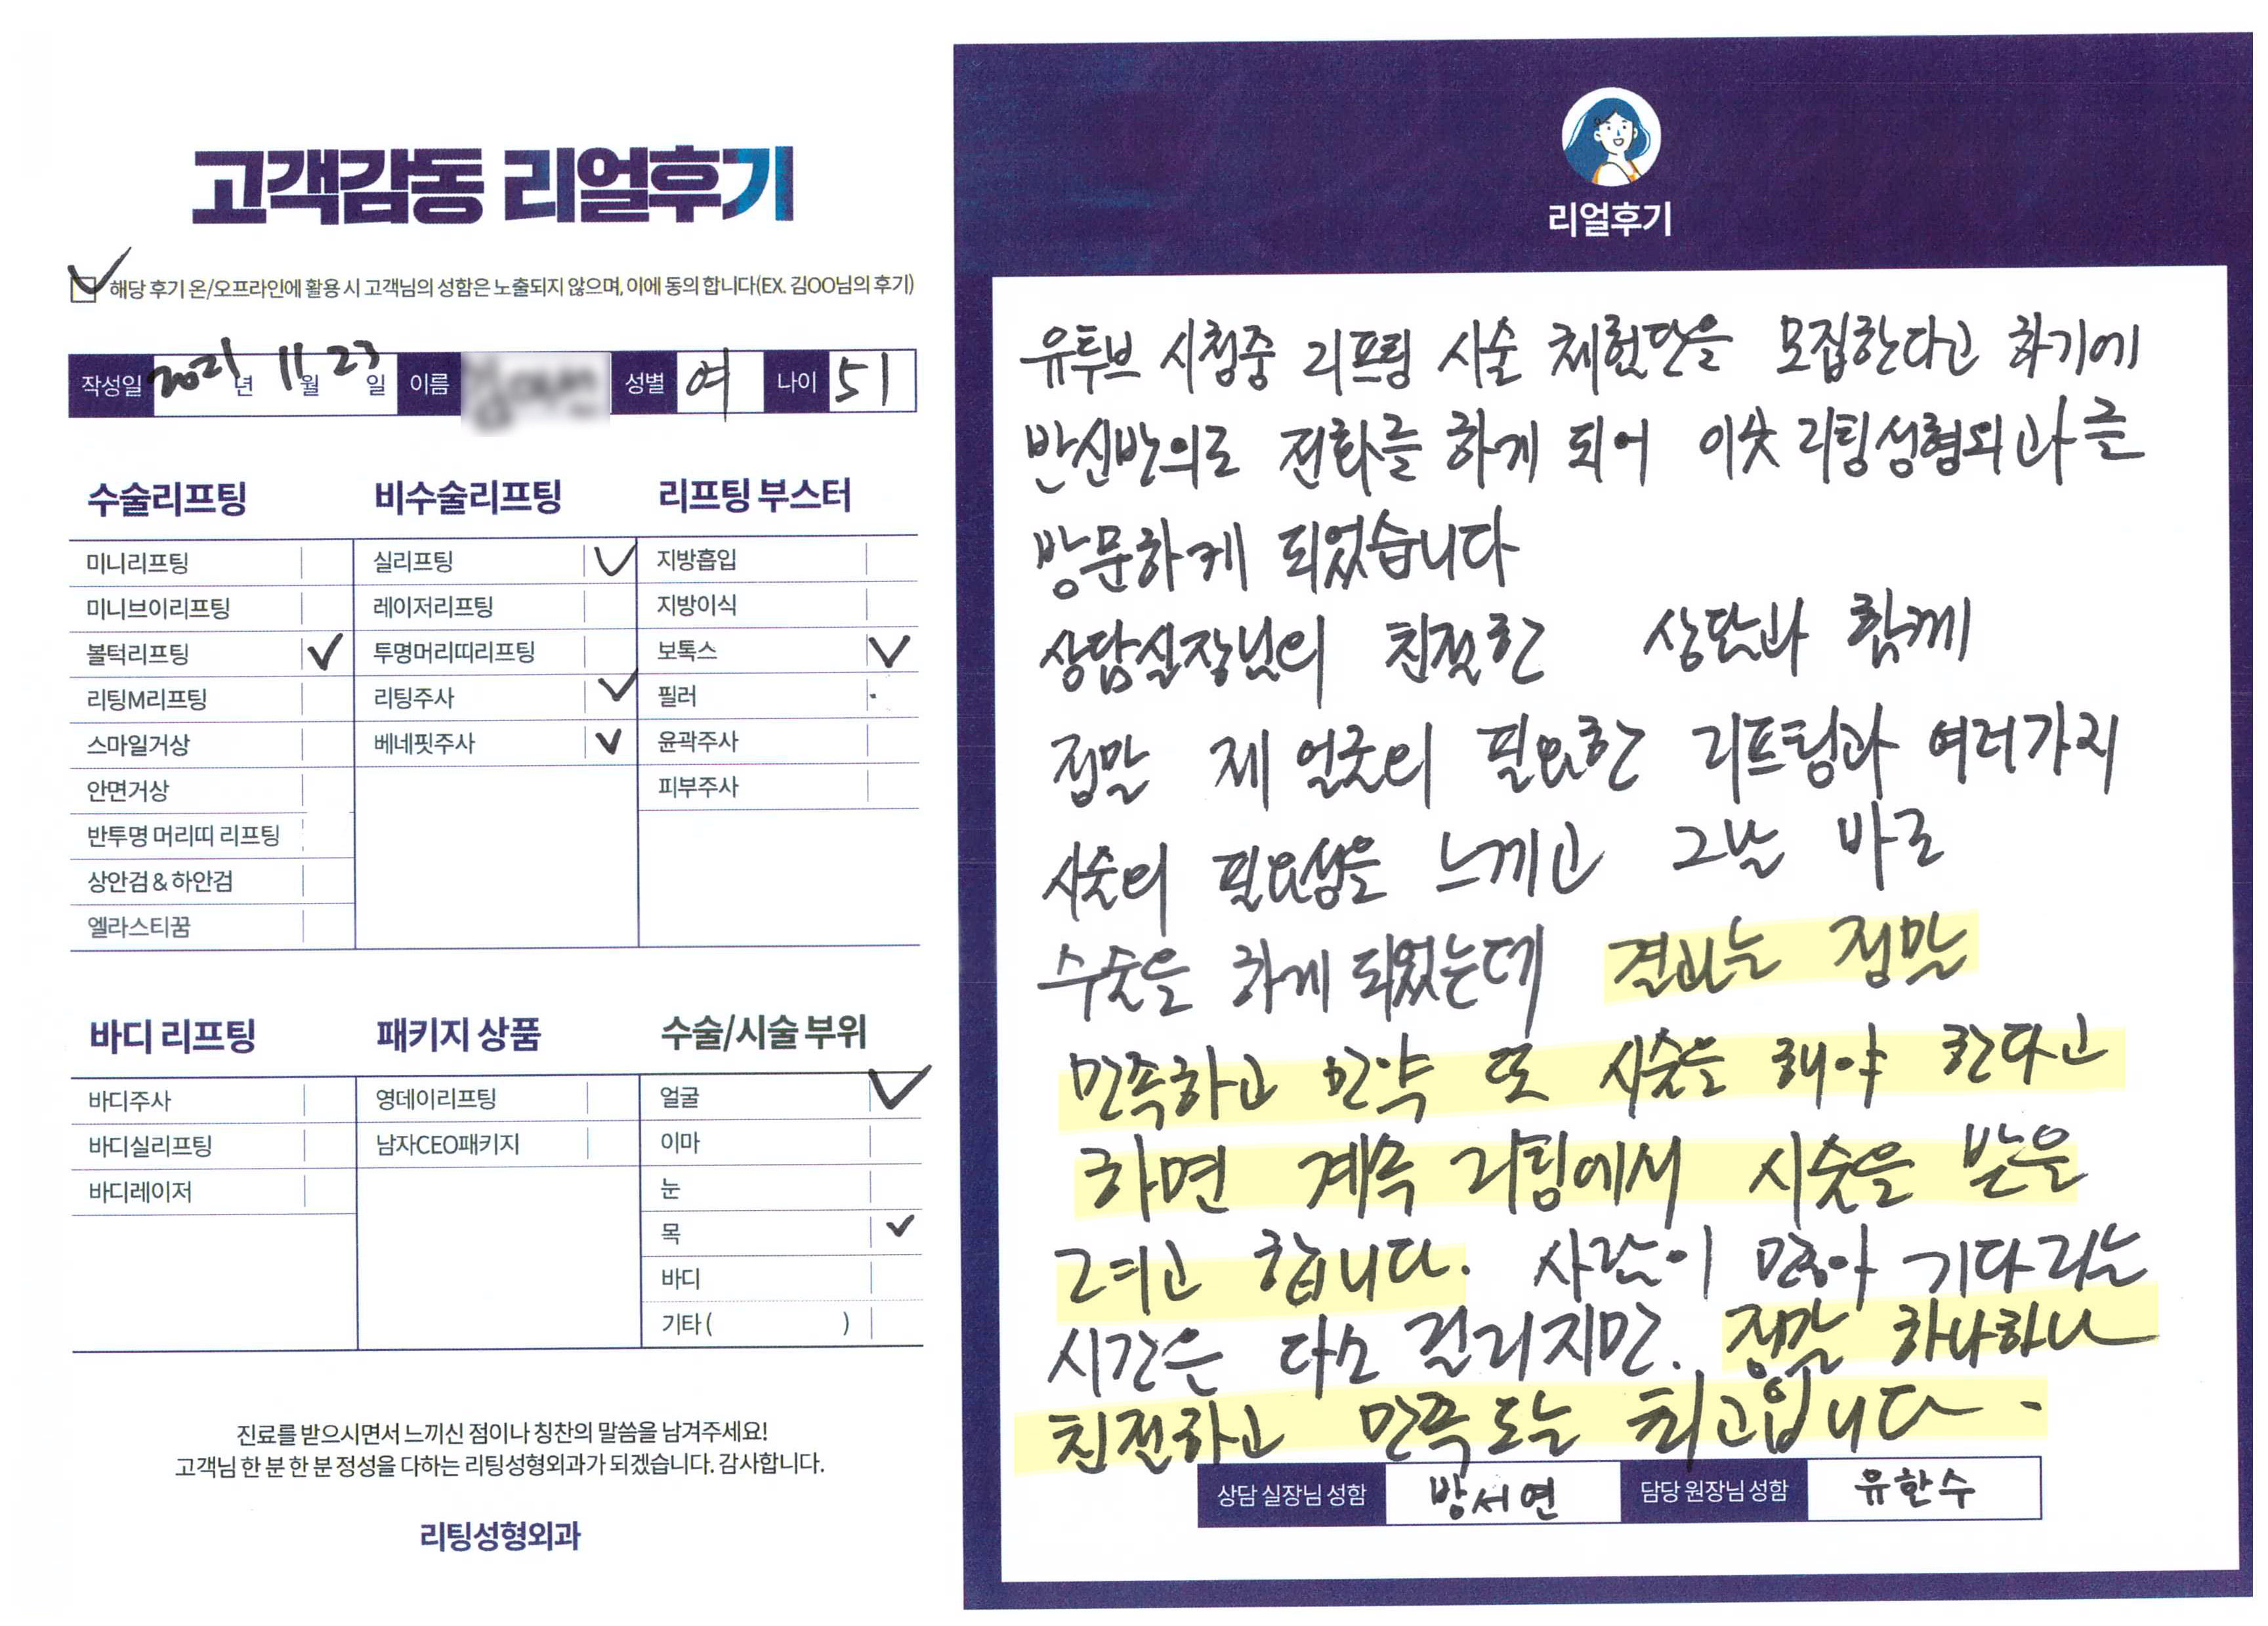 고객감동 리얼후기
해당 후기 온/오프라인에 활용 시 고객님의 성함은 노출되지 않으며, 이에 동의 합니다(EX. 김OO님의 후기)
작성일 2021년 11월 23일 이름 성별 여 나이 51
수술리프팅
미니리프팅
미니브이리프팅
볼턱리프팅 ✓
리팅M리프팅
스마일거상
안면거상
반투명 머리띠 리프팅
상안검 & 하안검
엘라스티꿈
비수술리프팅
실리프팅 ✓
레이저리프팅
투명머리띠리프팅
리팅주사 ✓
베네핏주사 ✓
리프팅 부스터
지방흡입
지방이식
보톡스 ✓
필러
윤곽주사
피부주사
바디 리프팅
바디주사
바디실리프팅
바디레이저
패키지 상품
영데이리프팅
남자CEO패키지
수술/시술 부위
얼굴 ✓
이마
눈
목 ✓
바디
기타 ( )
진료를 받으시면서 느끼신 점이나 칭찬의 말씀을 남겨주세요!
고객님 한 분 한 분 정성을 다하는 리팅성형외과가 되겠습니다. 감사합니다.
리팅성형외과
리얼후기
유투브 시청중 리프팅 시술 체험단을 모집한다고 하기에
반신반의로 전화를 하게 되어 이곳 리팅성형외과를
방문하게 되었습니다
상담실장님의 친절한 상담과 함께
정말 제 얼굴의 필요한 리프팅과 여러가지
시술의 필요성을 느끼고 그날 바로
수술을 하게 되었는데 결과는 정말
만족하고 만약 또 시술을 해야 한다고
하면 계속 리팅에서 시술을 받을
그려고 합니다. 사람이 많아 기다리는
시간은 다소 걸리지만. 정말 하나하나
친절하고 만족도는 최고입니다.
상담 실장님 성함 방서연 담당 원장님 성함 유한수